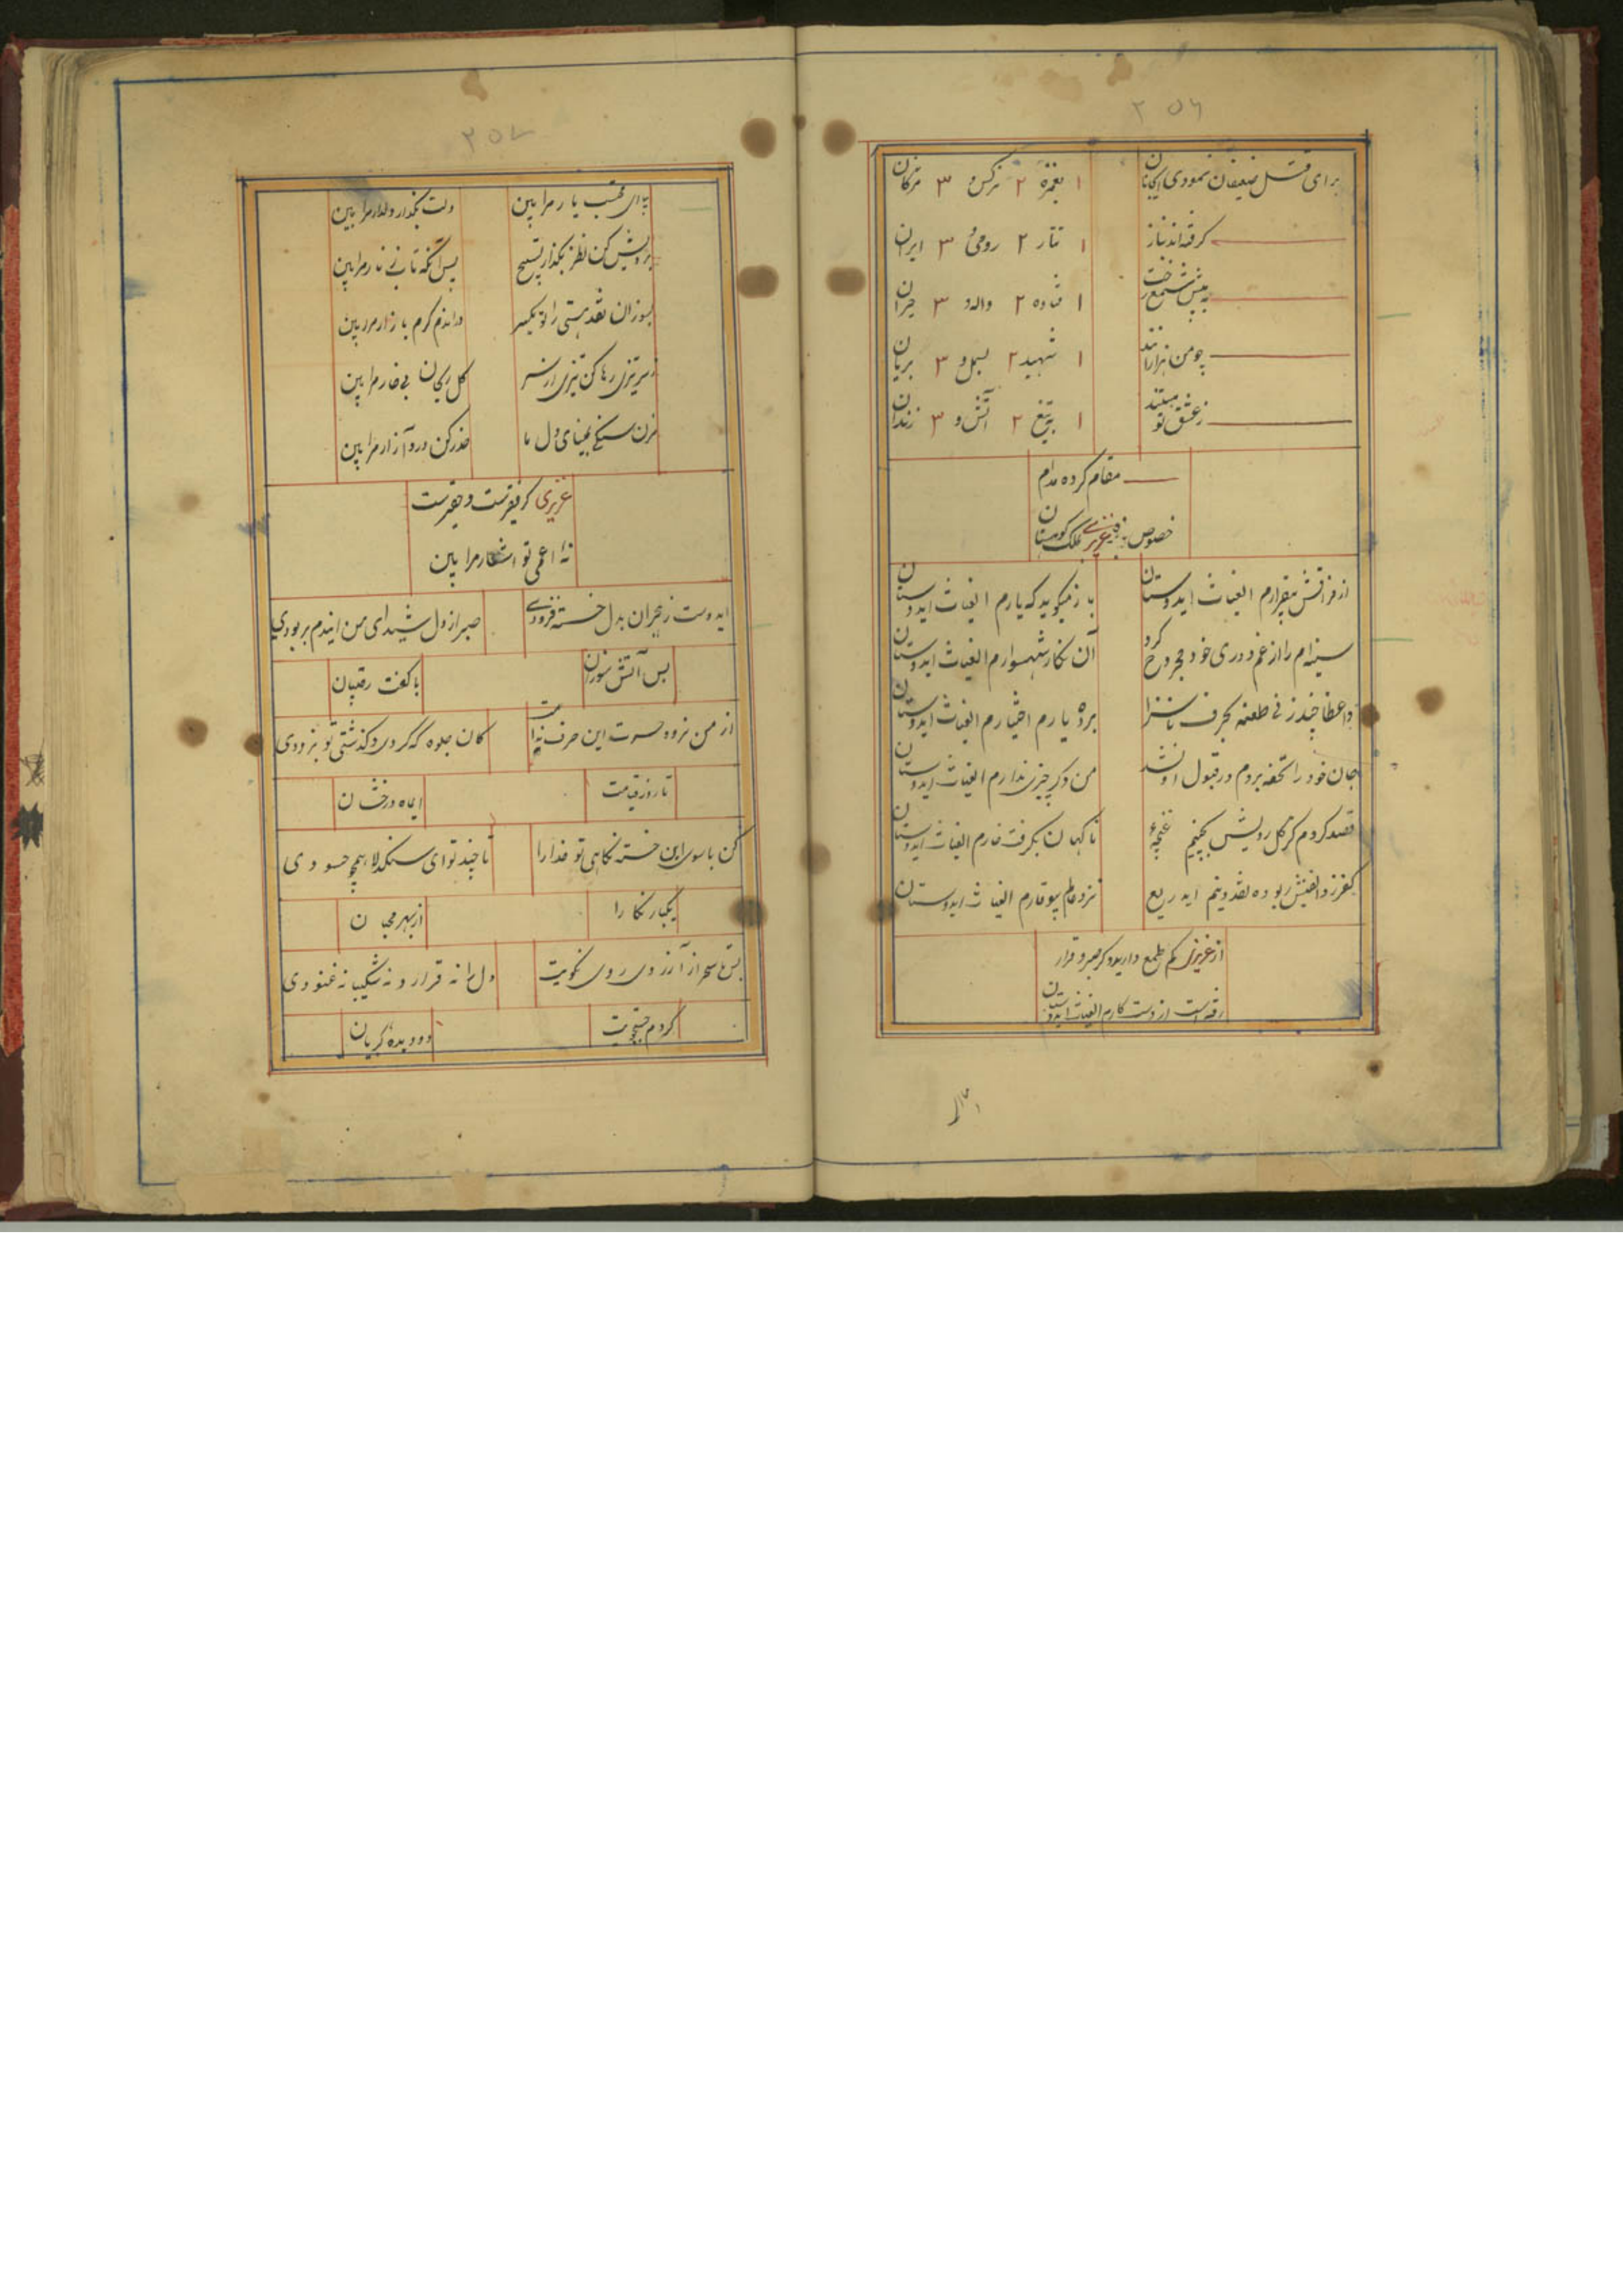 ۲۵۶
برای قتل ضعیفان نمودی ایجانان ۱ بغمزه ۲ نرکس و ۳ مژکان
کرفته اند نیاز ۱ تتار ۲ رومی و ۳ ایران
به پیش شمع رخت ۱ فتاده ۲ واله و ۳ حیران
چو من هزارانند ۱ شهید ۲ بسمل و ۳ بریان
ز عشق تو هستند ۱ بتیغ ۲ آتش و ۳ زندان
مقام کرده مدام
خصوص عزیزی ملک کوهستان
از فراقش بیقرارم الغیاث ایدوستان با ز میکوید که یارم الغیاث ایدوستان
سینه ام را از غم دوری خود مجروح کرد آن نکار شهسوارم الغیاث ایدوستان
واعظا چند زنی طعنه بحرف ناسزا برده یارم اختیارم الغیاث ایدوستان
جان خود را تحفه بردم در قبول او نشد من دکر چیزی ندارم الغیاث ایدوستان
قصد کردم کز کل رویش بچینم غنچهء ناکهان بکرفت خارم الغیاث ایدوستان
کفر زلفینش ربوده نقد دینم ایدریغ نزد عالم بیوقارم الغیاث ایدوستان
از عزیزی کم طمع دارید دکر صبر و قرار
رفته است از دست کارم الغیاث ایدوستان
۲۵۷
بیا ای محتسب یار مرا بین دلت بکذار دلدار مرا بین
برویش کن نظر بکذار تسبیح پس آنکه تاب زنار مرا بین
بسوزان نقد هستی را تو یکسر در اندم کرم بازار مرا بین
کل ریحان بی خار مرا بین
مزن سنکی بمینای دل ما حذر کن درد آزار مرا بین
عزیزی کر فقیرست و حقیرست
نه اعمی تو اشعار مرا بین
ایدوست ز هجران بدل خسته فزودی صبر از دل شیدای من ایندم بربودی
بس آتش سوزان با کفت رقیبان
از من نرود حسرت این حرف کان جلوه که کردی و کذشتی تو بزودی
تا روز قیامت ایماه درخشان
کن با سوی این خسته نکاهی تو خدارا تا چند تو ای سنکدلا همچو حسودی
یکبار نکارا از بهر محبان
شب تا سحر از آرزوی روی نکویت دل را نه قرار و نه شکیب نه غنودی
کردم جستجویت دو دیده کریان